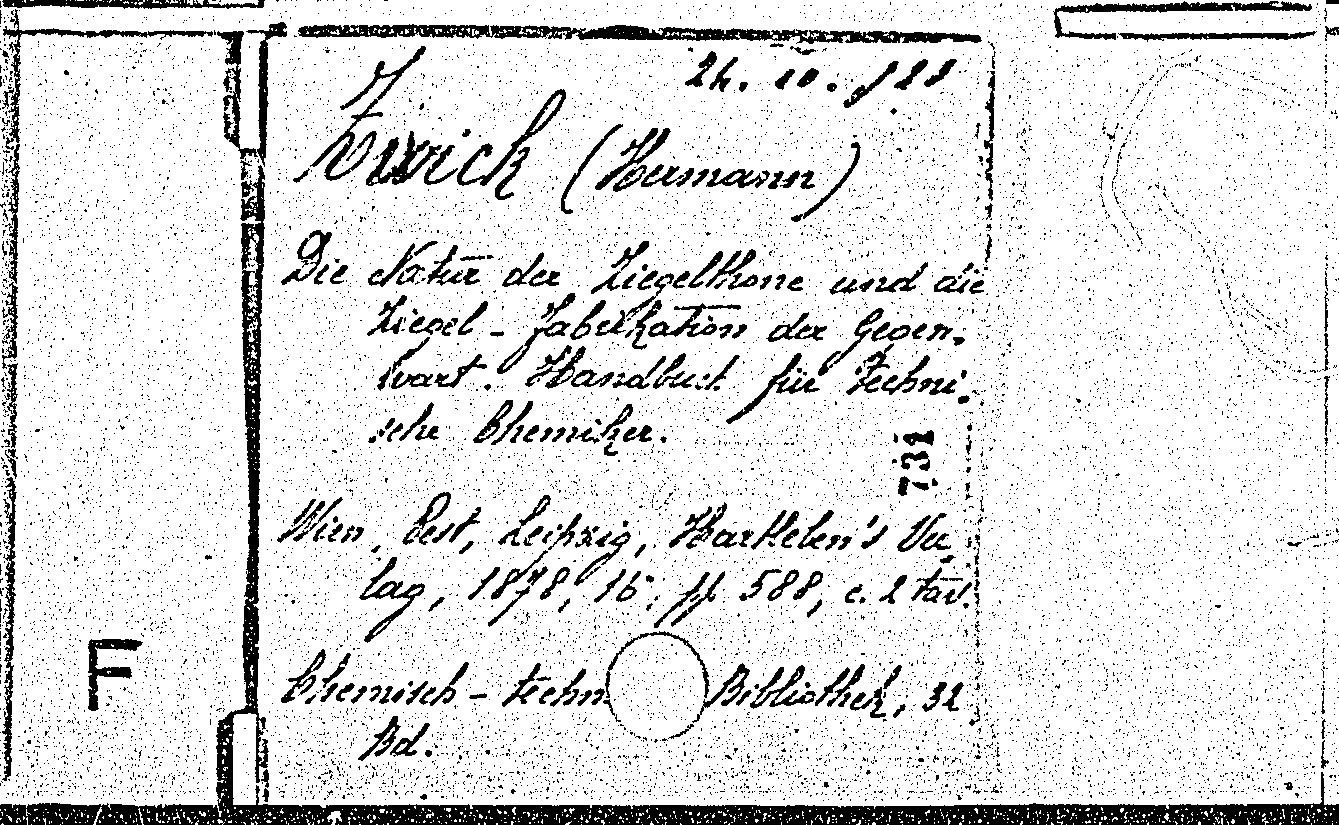 24. 10. 123
Z
Zwick (Hermann)
Die Natur der Ziegelthone und die
Ziegel - Fabrikation der Gegen-
wart. Handbuch für techni-
sche Chemiker.
731
Wien, Pest, Leipzig, Hartleben's Ver-
lag, 1878, 16°, pp. 588, c. 2 tav.
F
Chemisch - techn. Bibliothek, 32
Bd.